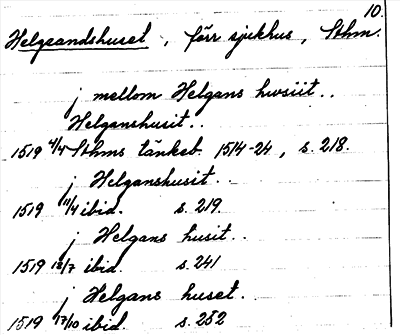 10.
Helgeandshuset, förr sjukhus, Sthm.
j mellom Helgans hwsiit..
Helganshusit..
1519 4/4 Sthms tänkeb. 1514-24, s. 218.
j Helganshusit..
1519 11/4 ibid. s. 219.
j Helgans husit..
1519 18/7 ibid. s. 241
j Helgans huset.
1519 17/10 ibid. s. 252